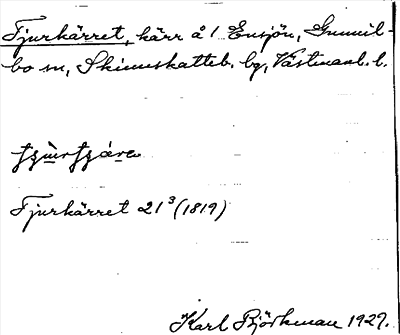 Tjurkärret, kärr å l Ensjön, Gunnil-
bo sn, Skinnskatteb. bg, Västmanl. l.
Tjurkärret 21³ (1819)
Karl Björkman 1927.